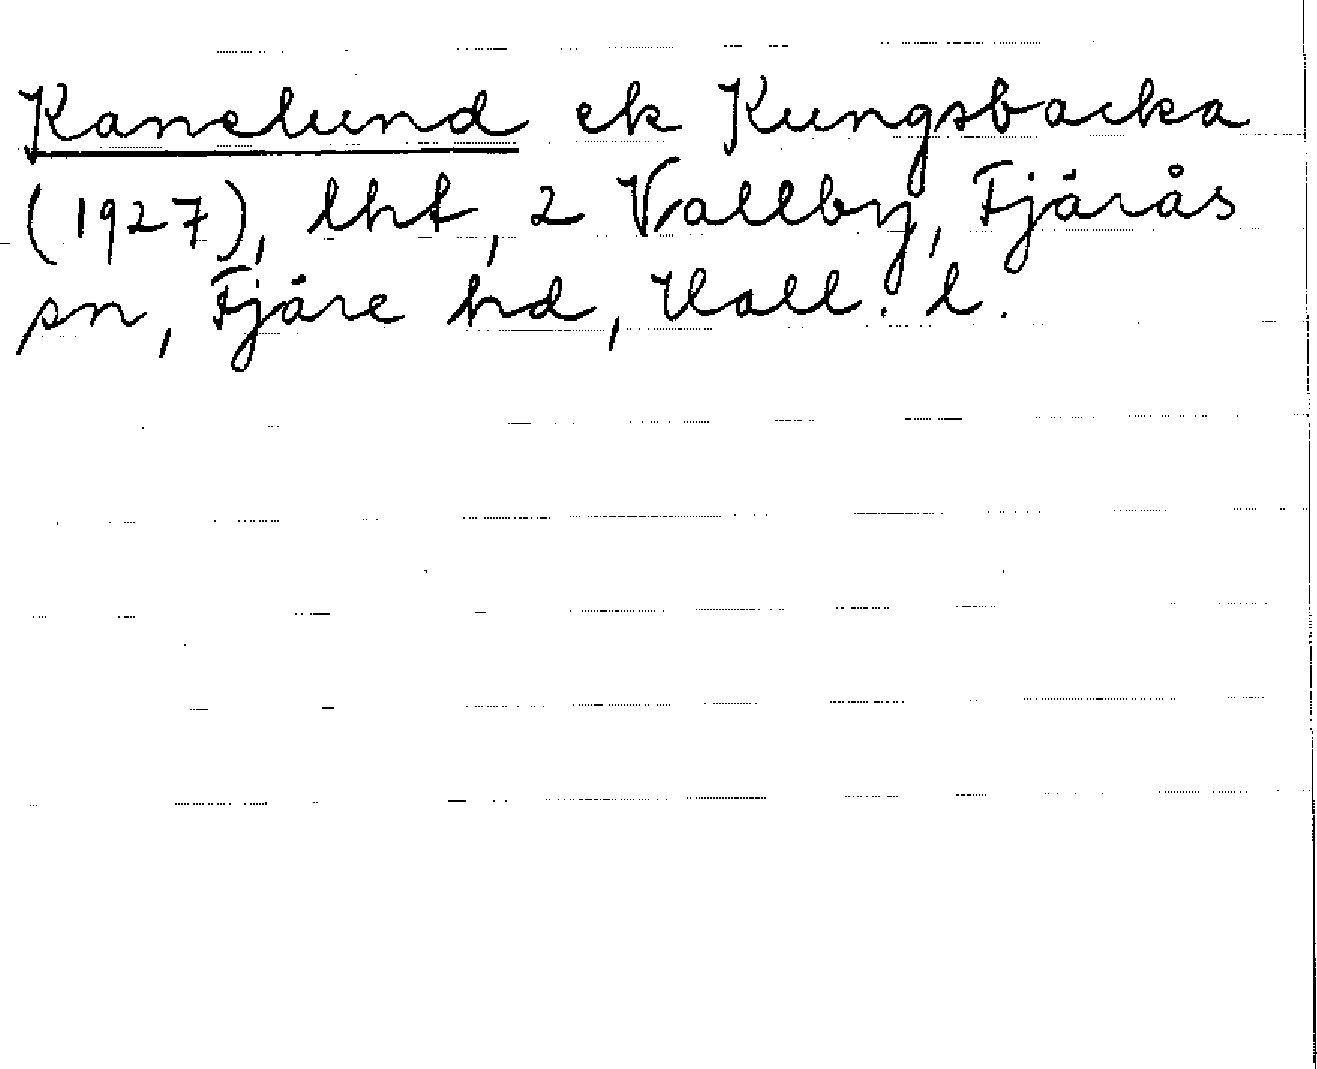 Kanelund ek Kungsbacka
(1927), lht, 2 Vallby, Fjärås
sn, Fjäre hd, Hall. l.